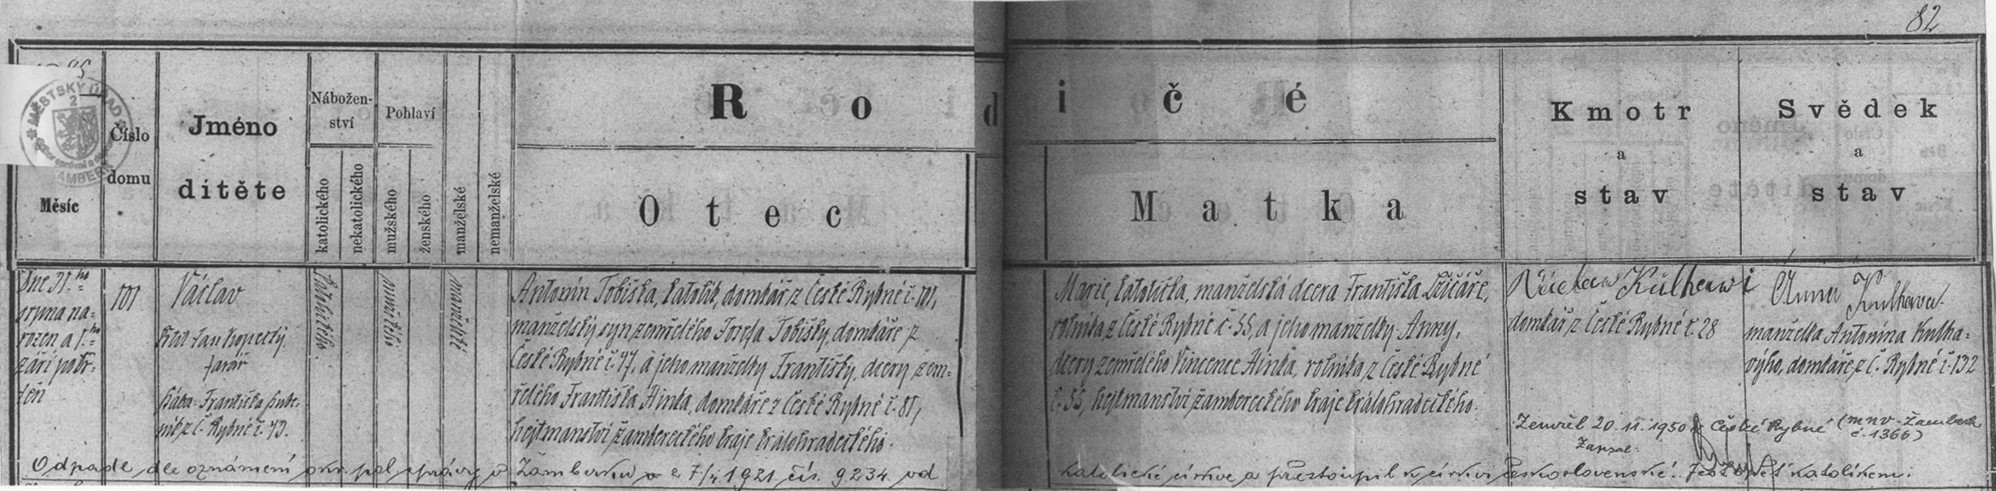 82
1885
MĚSTSKÝ ÚŘAD
ŽAMBERK
2
Měsíc
Číslo
domu
Jméno
dítěte
Nábožen-
ství
katolického
nekatolického
Pohlaví
mužského
ženského
manželské
nemanželské
Rodičé
Otec
Matka
Kmotr
a
stav
Svědek
a
stav
Dne 31.ho
srpna na-
rozen a 1.ho
září pokř-
těn
101
Václav
Křtil Jan Kopecký
farář
Bába: Františka
z Č. Rybné č. 43.
katolického
mužského
manželské
Antonín Tobiška, katolík, domkář z České Rybné č. 101,
manželský syn zemřelého Josefa Tobišky, domkáře z
České Rybné č. 47. a jeho manželky Františky, dcery zem-
řelého Františka Hinka, domkáře z České Rybné č. 81,
hejtmanství žambereckého kraje králohradeckého.
Marie, katolička, manželská dcera Františka
rolníka z České Rybné č. 55, a jeho manželky Anny,
dcery zemřelého Vincence Hinka, rolníka z České Rybné
č. 55, hejtmanství žambereckého kraje králohradeckého.
Václav Kulhawi
domkář z České Rybné č. 28
Anna Kulhava
manželka Antonína Kulha-
výho, domkáře z Č. Rybné č. 132
Zemřel 20. 11. 1950 v České Rybné (MNV - Žamberk
č. 1366)
Zapsal:
Odpadl dle oznámení okr. pol. správy v Žamberku z 7/4 1921. čís. 9234 od
katolické církve a přestoupil k církvi československé. Jest opět katolíkem.